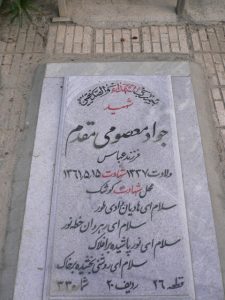 شهید
جواد معصومی مقدم
فرزند عباس
ولادت ۱۳۳۷ شهادت ۱۳۶۱،۵،۱۵
محل شهادت کوشک
سلام ای هادیان وادی نور
سلام ای رهروان خطه نور
سلام ای نور پاشیده بر افلاک
سلام ای روشنی بخشیده بر خاک
قطعه ۲۶ ردیف ۲۰ شماره ۳۳